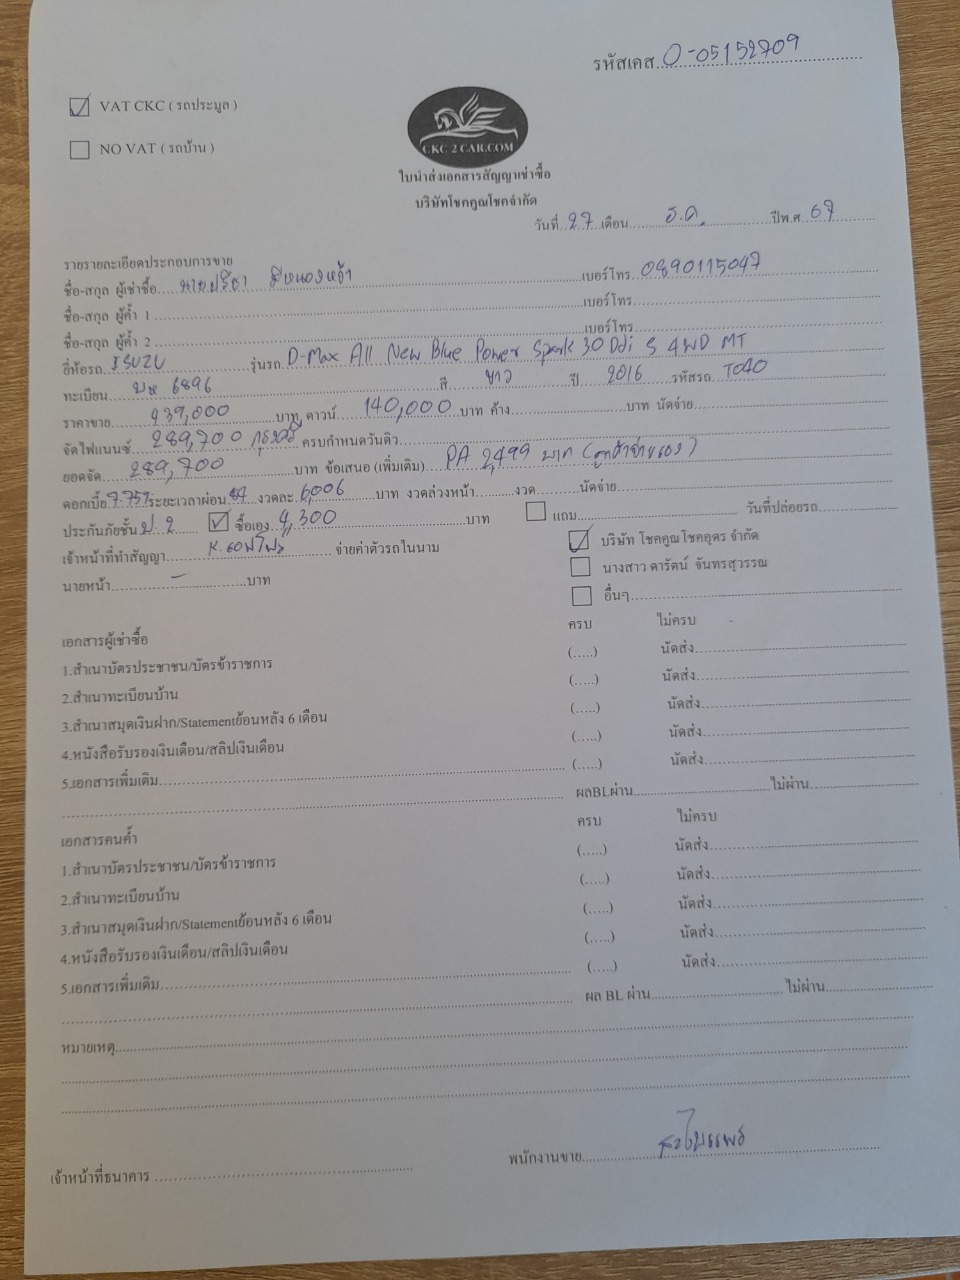 รหัสเคส 0-05152709
VAT CKC ( รถประมูล )
NO VAT ( รถบ้าน )
CKC 2 CAR.COM
ใบนำส่งเอกสารสัญญาเช่าซื้อ
บริษัทโชคคูณโชคจำกัด
วันที่ 27 เดือน ธ.ค. ปีพ.ศ 67
รายรายละเอียดประกอบการขาย
ชื่อ-สกุล ผู้เช่าซื้อ นายปรีชา เบอร์โทร 0890115047
ชื่อ-สกุล ผู้ค้ำ 1 เบอร์โทร
ชื่อ-สกุล ผู้ค้ำ 2 เบอร์โทร
ยี่ห้อรถ ISUZU รุ่นรถ D-Max All New Blue Power Spark 3.0 Ddi S 4WD MT
ทะเบียน บห 6896 สี ขาว ปี 2016 รหัสรถ T040
ราคาขาย 439,000 บาท ดาวน์ 140,000 บาท ค้าง บาท นัดจ่าย
จัดไฟแนนซ์ 289,700 กรุงศรี ครบกำหนดวันดิว
ยอดจัด 289,700 บาท ข้อเสนอ (เพิ่มเติม) PA 2,499 บาท (ลูกค้าจ่ายเอง)
ดอกเบี้ย 7.75% ระยะเวลาผ่อน 84 งวดละ 6,006 บาท งวดล่วงหน้า งวด นัดจ่าย
ประกันภัยชั้น ป.2 ซื้อเอง 9,300 บาท แถม วันที่ปล่อยรถ
เจ้าหน้าที่ทำสัญญา จ่ายค่าตัวรถในนาม บริษัท โชคคูณโชคอุดร จำกัด
นายหน้า - บาท นางสาว ดารัตน์ จันทรสุวรรณ
อื่นๆ
เอกสารผู้เช่าซื้อ ครบ ไม่ครบ
1.สำเนาบัตรประชาชน/บัตรข้าราชการ (.....) นัดส่ง
2.สำเนาทะเบียนบ้าน (.....) นัดส่ง
3.สำเนาสมุดเงินฝาก/Statementย้อนหลัง 6 เดือน (.....) นัดส่ง
4.หนังสือรับรองเงินเดือน/สลิปเงินเดือน (.....) นัดส่ง
5.เอกสารเพิ่มเติม (.....) นัดส่ง
ผลBLผ่าน ไม่ผ่าน
เอกสารคนค้ำ ครบ ไม่ครบ
1.สำเนาบัตรประชาชน/บัตรข้าราชการ (.....) นัดส่ง
2.สำเนาทะเบียนบ้าน (.....) นัดส่ง
3.สำเนาสมุดเงินฝาก/Statementย้อนหลัง 6 เดือน (.....) นัดส่ง
4.หนังสือรับรองเงินเดือน/สลิปเงินเดือน (.....) นัดส่ง
5.เอกสารเพิ่มเติม (.....) นัดส่ง
ผล BL ผ่าน ไม่ผ่าน
หมายเหตุ
พนักงานขาย
เจ้าหน้าที่ธนาคาร